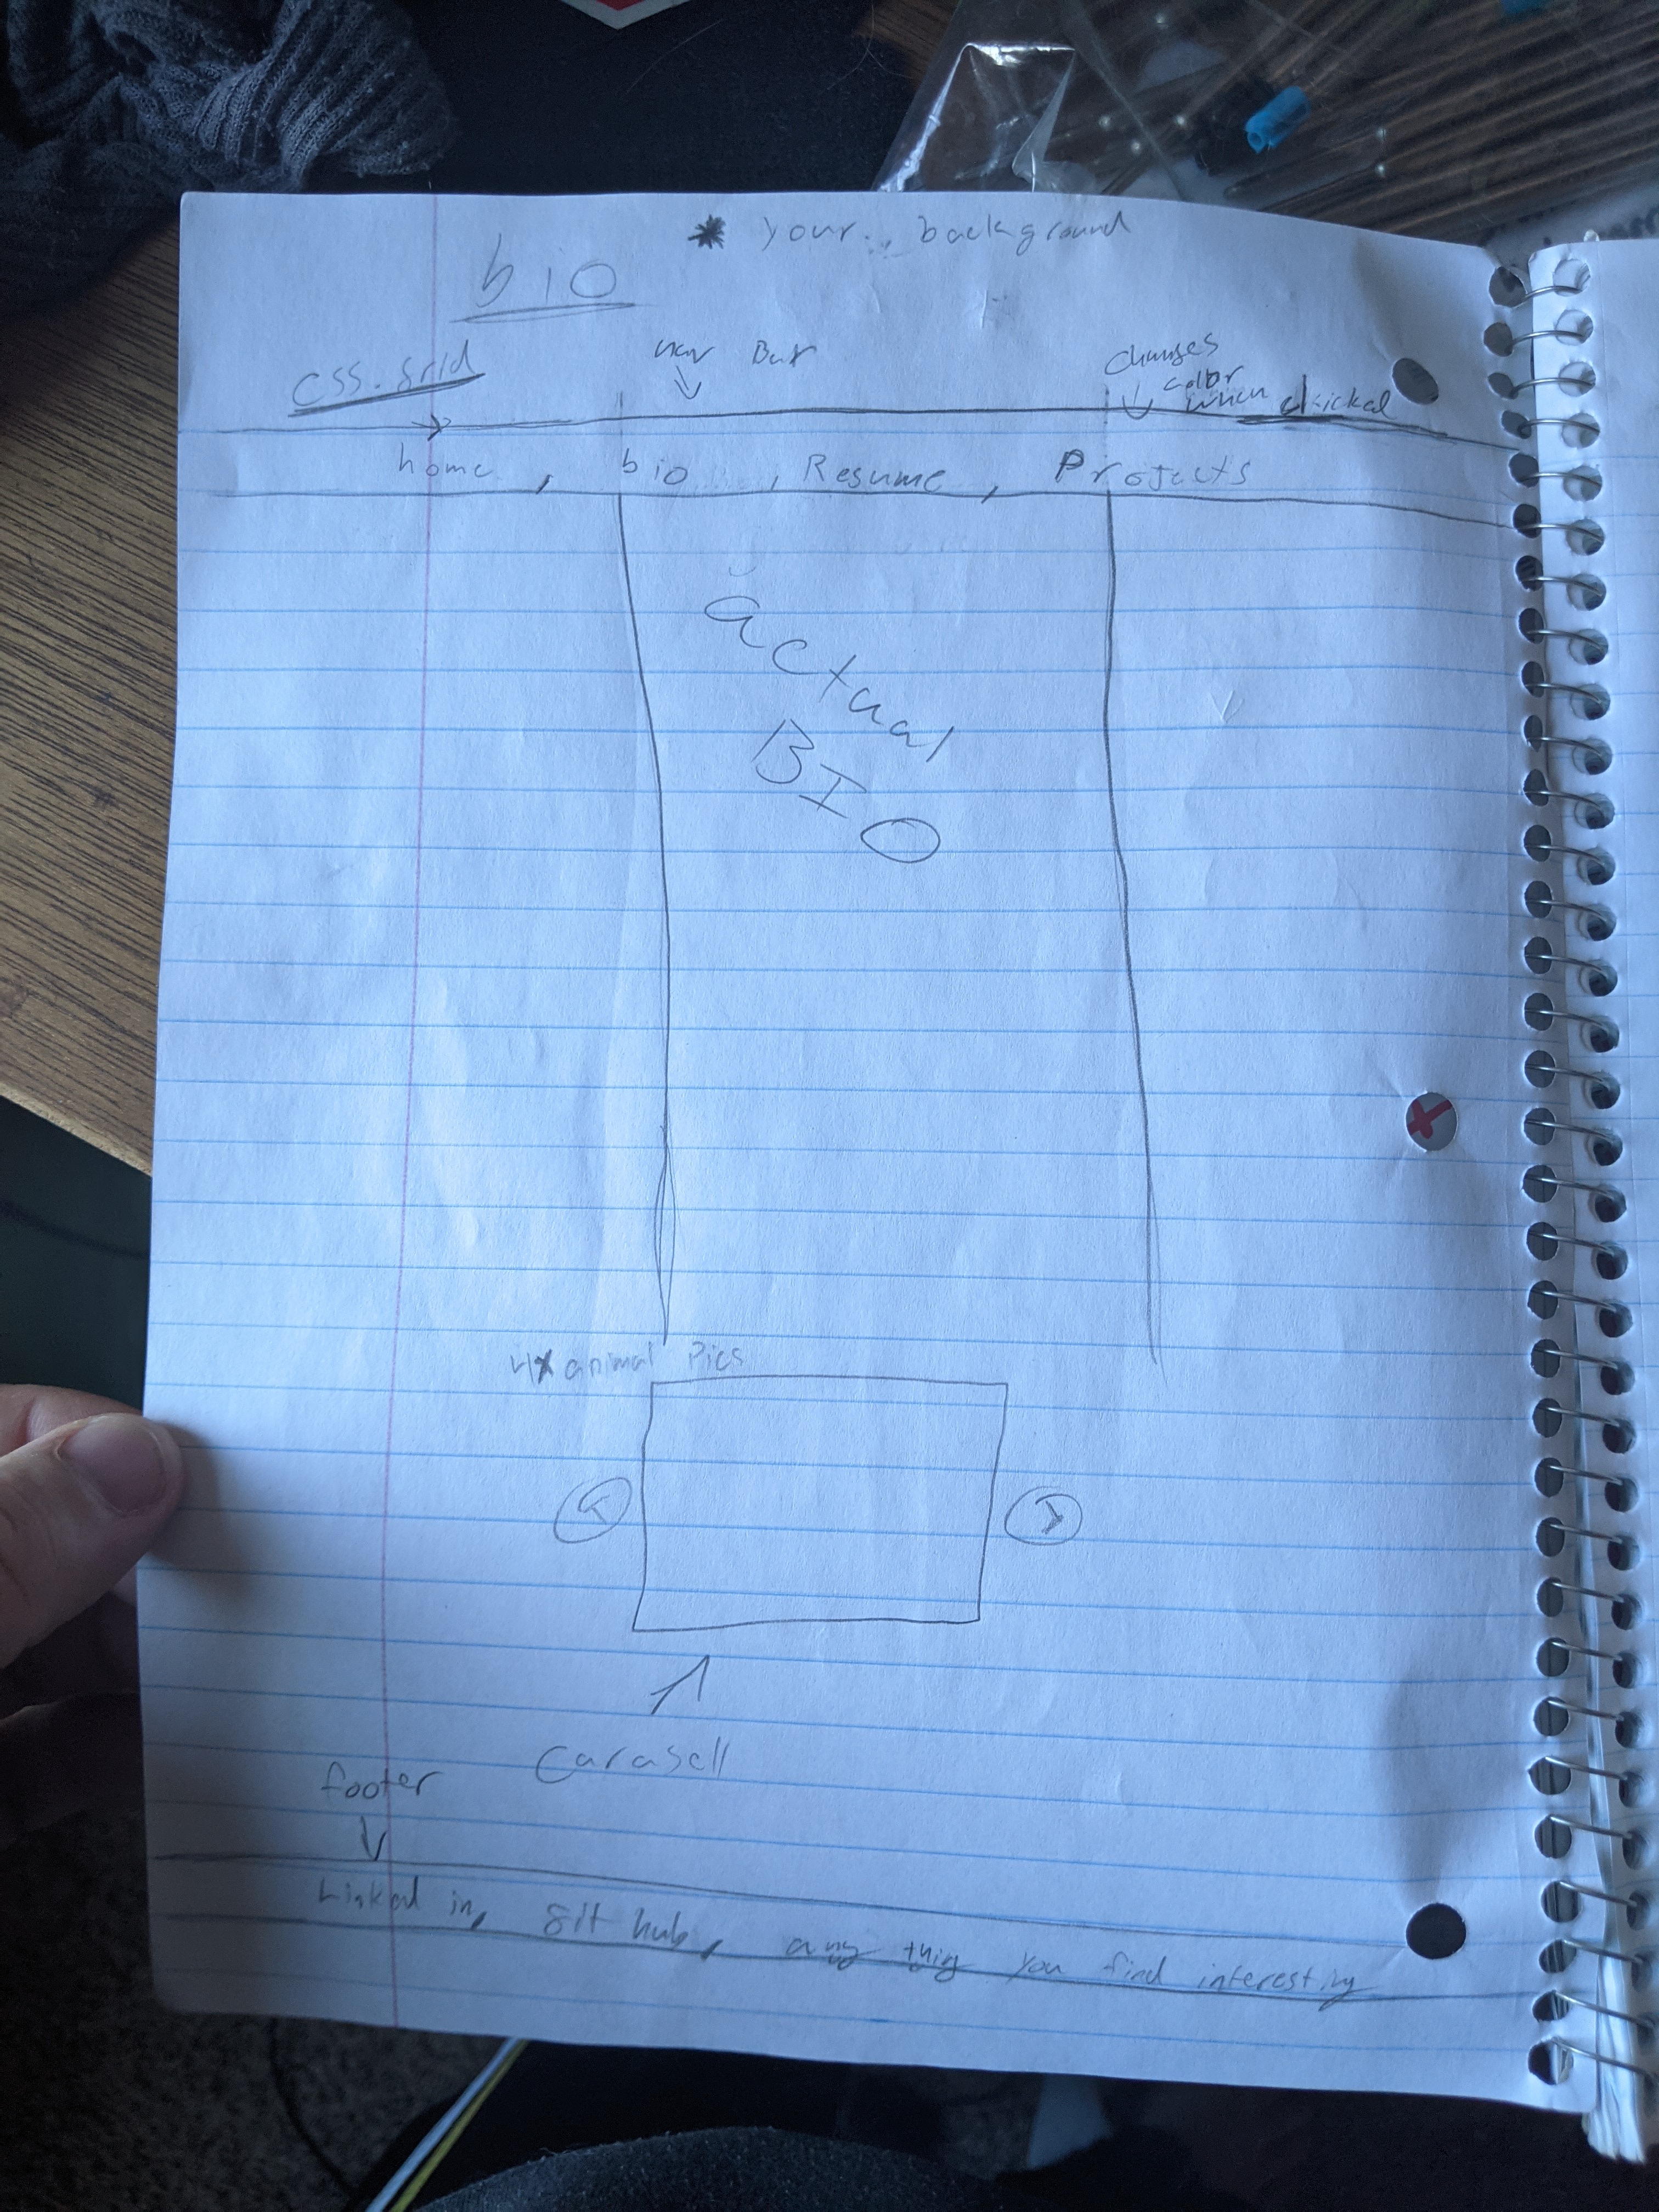 * your.. background
bio
css.grid
nav Bar
Changes
color
when clickd
home, bio, Resume, Projects
actual
BIO
4x animal Pics
Carasell
footer
Linked in, git hub, any thing you find interesting